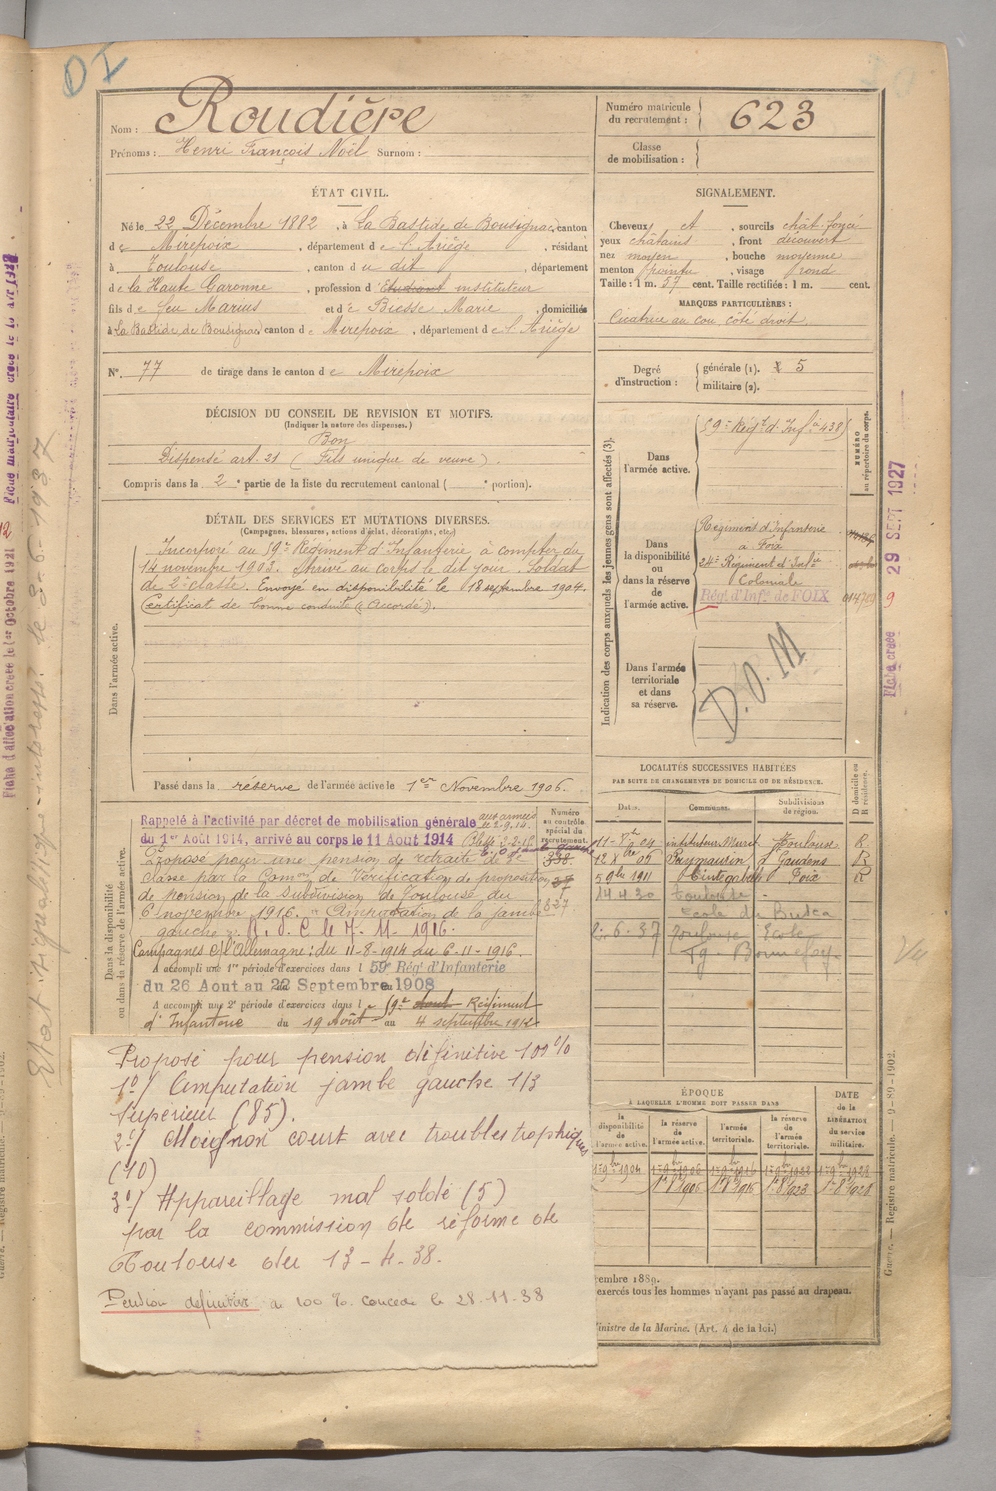 D I
Nom : Roudière
Prénoms : Henri François Noël Surnom :
Numéro matricule
du recrutement : 623
Classe
de mobilisation :
ÉTAT CIVIL.
Né le 22 Décembre 1882, à La Bastide de Bousignac, canton
de Mirepoix, département de l'Ariège, résidant
à Toulouse, canton du dit, département
de la Haute Garonne, profession d'étudiant instituteur
fils de feu Marius et de Biesse Marie, domiciliés
à La Bastide de Bousignac canton de Mirepoix, département de l'Ariège
N° 77 de tirage dans le canton de Mirepoix
SIGNALEMENT.
Cheveux et, sourcils chât. foncé
yeux châtains, front découvert
nez moyen, bouche moyenne
menton pointu, visage rond
Taille : 1 m. 57 cent. Taille rectifiée : 1 m. cent.
MARQUES PARTICULIÈRES :
Cicatrice au cou, côté droit
Degré
d'instruction :
générale (1). 5
militaire (2).
DÉCISION DU CONSEIL DE REVISION ET MOTIFS.
(Indiquer la nature des dispenses.)
Bon
Dispensé art. 21 (Fils unique de veuve).
Compris dans la 2e partie de la liste du recrutement cantonal ( e portion).
DÉTAIL DES SERVICES ET MUTATIONS DIVERSES.
(Campagnes, blessures, actions d'éclat, décorations, etc.)
Dans l'armée active.
Incorporé au 59e Régiment d'Infanterie à compter du
14 novembre 1903. Arrivé au corps le dit jour. Soldat
de 2e classe. Envoyé en disponibilité le 18 septembre 1904.
Certificat de bonne conduite "Accordé".
Passé dans la réserve de l'armée active le 1er Novembre 1906.
Indication des corps auxquels les jeunes gens sont affectés (3).
NUMÉRO
au répertoire du corps.
Dans
l'armée active.
59e Régt d'Infie 438
Dans
la disponibilité
ou
dans la réserve
de
l'armée active.
Régiment d'Infanterie
à Foix
24e Régiment d'Infie
Coloniale
Régt d'Infie de FOIX
Dans l'armée
territoriale
et dans
sa réserve.
D.O.M
LOCALITÉS SUCCESSIVES HABITÉES
PAR SUITE DE CHANGEMENTS DE DOMICILE OU DE RÉSIDENCE.
Dates. Communes. Subdivisions
de région. D domicile ou
R résidence.
11-8bre 04 instituteur Muret Toulouse R
Puymaurin St Gaudens R
5 9bre 1911 Cintegabelle Foix R
14 4 30 Toulouse
Ecole du Busca
2-6-37 Toulouse Ecole
Fg. Bonnefoy
Dans la disponibilité
ou dans la réserve de l'armée active.
Numéro
au contrôle
spécial du
recrutement.
338
37
Rappelé à l'activité par décret de mobilisation générale aux armées
du 1er Août 1914, arrivé au corps le 11 Août 1914
Proposé pour une pension de retraite de
classe par la Comon de Vérification de proposition
de pension de la Subdivision de Toulouse du
6 novembre 1916. "Amputation de la jambe
gauche".
Campagnes C/ l'Allemagne : du 11-8-1914 au 6-11-1916
A accompli une 1re période d'exercices dans le 59e Rég' d'Infanterie
du 26 Aout au 22 Septembre 1908
A accompli une 2e période d'exercices dans le 59e Régiment
d'Infanterie du 19 Août au 4 septembre
Proposé pour pension définitive 100 %
1°/ Amputation jambe gauche 1/3
supérieur (85).
2°/ Moignon court avec troubles trophiques
(10)
3°/ Appareillage mal soldé (5)
par la commission de réforme de
Toulouse du 13-4-38.
Pension définitive à 100 % concédée le 28.11.38
ÉPOQUE
À LAQUELLE L'HOMME DOIT PASSER DANS
la
disponibilité
de
l'armée active. la
réserve
de
l'armée active. l'armée
territoriale. la réserve
de
l'armée
territoriale. DATE
de la
LIBÉRATION
du service
militaire.
1er 9bre 1904 1er 9bre 1906 1er 9bre 1916 1er 9bre 1922 1er 9bre 1928
1er 8bre 1906 1er 8bre 1916 1er 8 1923 1er 8 1928
cembre 1889.
exercés tous les hommes n'ayant pas passé au drapeau.
inistre de la Marine. (Art. 4 de la loi.)
Guerre. — Registre matricule. — 9-89-1902.
Fiche créée 29 SEPT 1927
Fiche d'allocation créée le 1er Octobre 1921
Vu